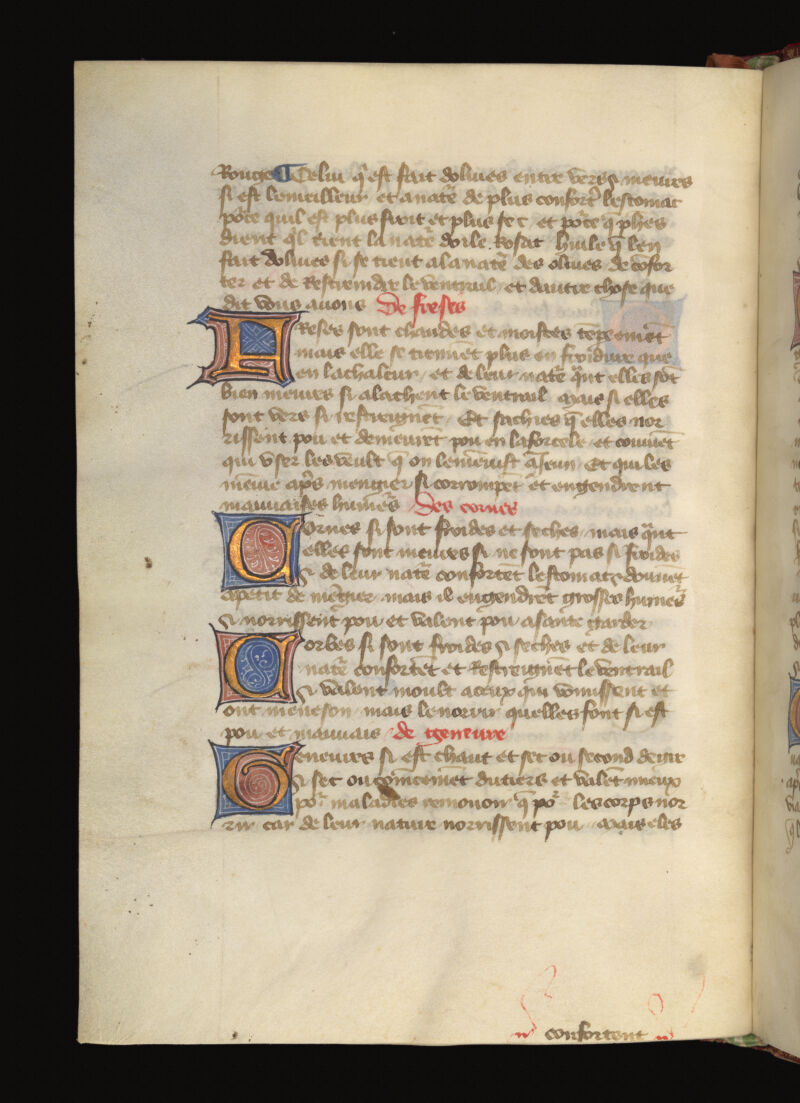 Rouge ¶ Celui q̄ est fait doliues entre vers ⁊ meures
si est le meilleur et a natē de plus confort̄ lestomac
põce quil est plus froit et plus sec et põce q̄ phes
dient ql̄ tient la natē doile Rosat huile q̄ len
fait doliues si se tient a la natē des oliues de cõfor
ter et de Restreindre le ventrail et dautre chose que
dit vous auons De freses
FReses sont chaudes et moistes
mais elle se tiennēt plus en froidure que
en la chaleur et de leur natē q̄nt elles sōt
bien meures si alachent le ventrail Mais si elles
sont vers si restreignēt Et sachies q̄ elles nor
rissent pou et demeurēt pou en la forcele et couuēt
qui vser les veult q̄ on le menuist a Jeun Et qui les
meniue ap̄s mengier si corrompēt et engendrent
mauuaises humēs Des cornes
COrnes si sont froides et seches mais q̄nt
elles sont meures si ne sont pas si froides
⁊ de leur natē confortēt lestomac ⁊ donnēt
apetit de mēgier mais il engendrēt grosses humēs
⁊ norrissent pou et valent pou a sante garder
COrbes si sont froides ⁊ seches et de leur
natē confortēt et Restreignēt le ventrail
⁊ valent moult a ceux qui vomissent et
ont meneson mais le norrir quelles font si est
pou et mauuais de geneure
GEneures si est chaut et sec ou second degre
⁊ sec ou cōmencemēt du tiers et valēt mieux
por maladies remouoir q̄ por les corps nor
rir car de leur nature norrissent pou Mais eles
confortent